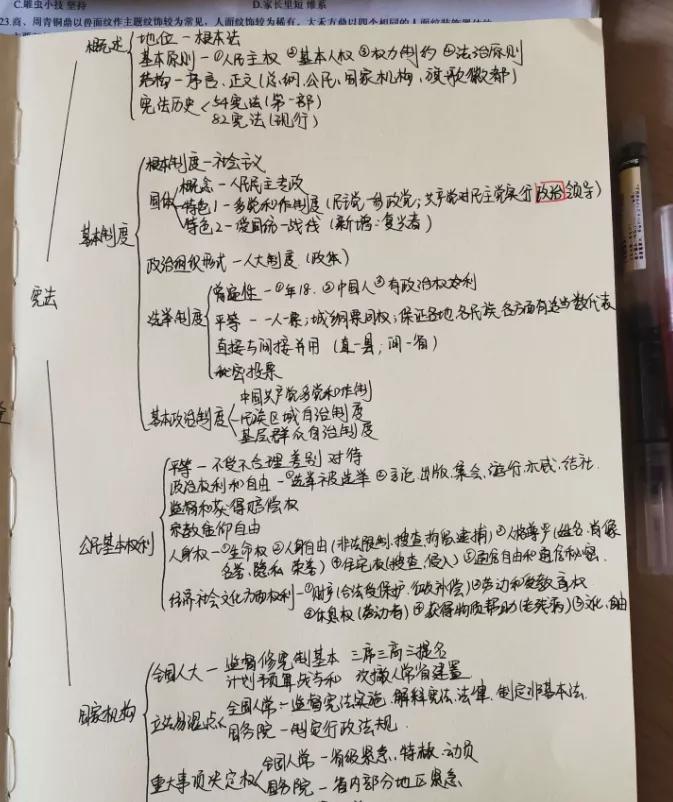 C.雕虫小技 坚持 D.家长里短 维系
23.商、周青铜鼎以兽面纹作主题纹饰较为常见,人面纹饰较为稀有。大禾方鼎以四个相同的人面纹装饰器体的
宪法
概述
地位-根本法
基本原则-①人民主权 ②基本人权 ③权力制约 ④法治原则
结构-序言、正文(总纲、公民、国家机构、旗歌徽都)
宪法历史 54宪法(第一部)
82宪法(现行)
基本制度
根本制度-社会主义
国体 概念-人民民主专政
特色1-多党合作制度(民主党-参政党;共产党对民主党实行政治领导)
特色2-爱国统一战线(新增:复兴者)
政治组织形式-人大制度(政体)
选举制度
普遍性-①年18.②中国人③有政治权利
平等-一人一票;城乡同票同权;保证各地、各民族、各方面有适当数代表
直接与间接并用(直-县;间-省)
秘密投票
基本政治制度
中国共产党多党合作制
民族区域自治制度
基层群众自治制度
公民基本权利
平等-不受不合理差别对待
政治权利和自由-①选举被选举②言论、出版、集会、游行示威、结社
监督和获得赔偿权
宗教信仰自由
人身权-①生命权②人身自由(非法限制、搜查、拘留逮捕)③人格尊严(姓名、肖像
名誉、隐私 荣誉)④住宅权(搜查、侵入)⑤通信自由和通信秘密.
经济社会文化方面权利-①财产(合法受保护、征收补偿)②劳动和受教育权
③休息权(劳动者)④获得物质帮助(老疾病)⑤文化、自由
国家机构
全国人大-监督修宪制基本 三席三高三提名
计划预算战与和 改撤人常省建置
立法易混点 全国人常:监督宪法实施、解释宪法、法律、制定非基本法.
国务院-制定行政法规.
重大事项决定权 全国人常-省级紧急、特赦、动员
国务院-省内部分地区紧急